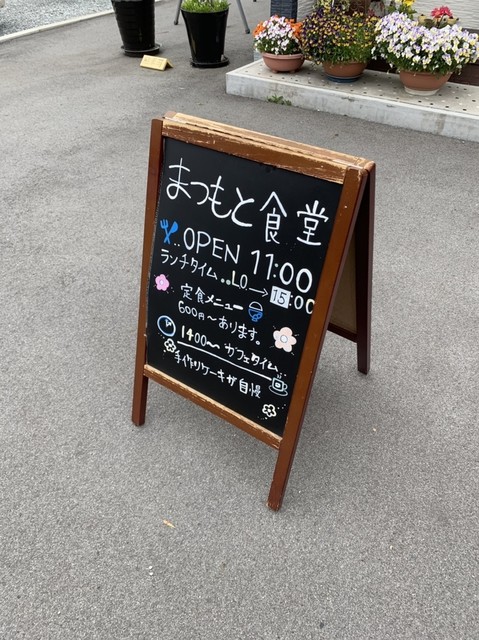 まつもと食堂
OPEN 11:00
ランチタイム..LO→15:00
定食メニュー
600円〜あります。
1400〜カフェタイム
手作りケーキが自慢